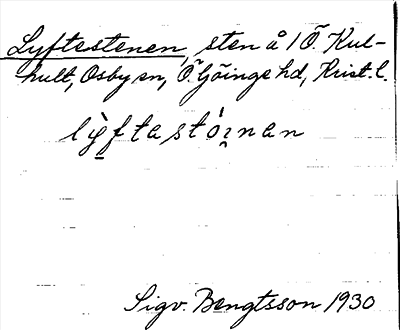 Lyftestenen, sten å 1 Ö. Kul-
hult, Osby sn, Ö. Göinge hd, Krist. l.
Sigv. Bengtsson 1930